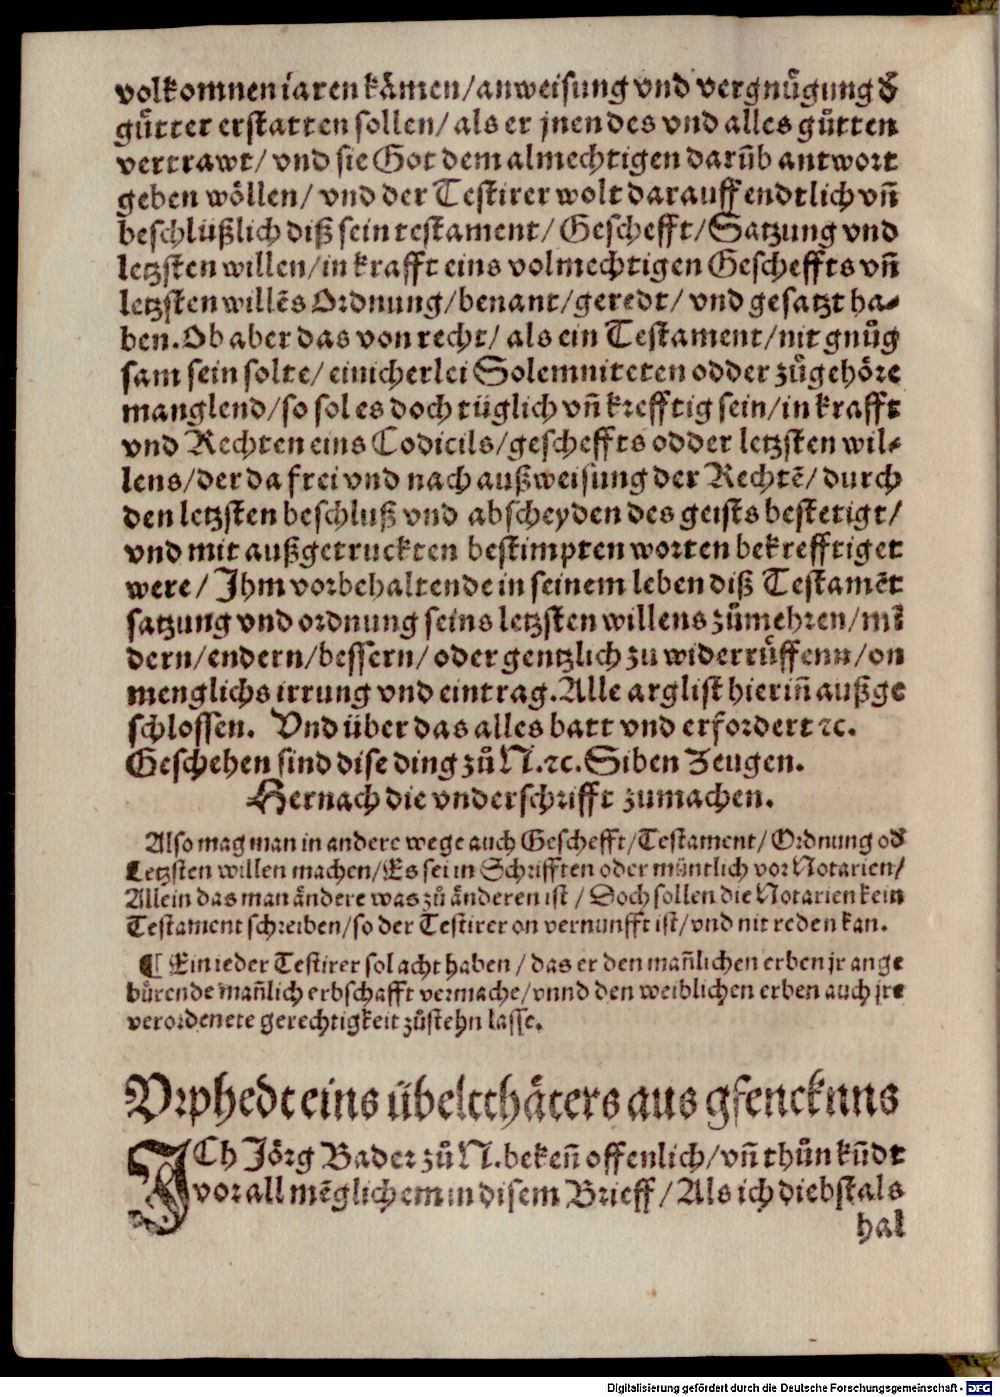 volkomnen iaren kämen/anweisung vnd vergnuͤgung d̕
guͤtter erstatten sollen/ als er jnen des vnd alles guͤtten
vertrawt/ vnd sie Got dem almechtigen darūb antwort
geben woͤllen/ vnd der Testirer wolt darauff endtlich vn̄
beschlüßlich diß sein testament/ Geschefft/Satzung vnd
letzsten willen/in krafft eins volmechtigen Gescheffts vn̄
letzsten willēs Ordnung/benant/geredt/ vnd gesatzt ha⸗
ben. Ob aber das von recht/ als ein Testament/nit gnuͦg
sam sein solte/ einicherlei Solemniteten odder zuͦgehoͤre
manglend/so sol es doch tüglich vn̄ krefftig sein/in krafft
vnd Rechten eins Codicils/gescheffts odder letzsten wil⸗
lens/der da frei vnd nach außweisung der Rechtē/ durch
den letzsten beschluß vnd abscheyden des geists bestetigt/
vnd mit außgetruckten bestimpten worten bekrefftiget
were/ Jhm vorbehaltende in seinem leben diß Testamēt
satzung vnd ordnung seins letzsten willens zuͦmehren/mī
dern/endern/bessern/ oder gentzlich zu widerruͤffenn/on
menglichs irrung vnd eintrag. Alle arglist hierin̄ außge
schlossen. Vnd über das alles batt vnd erfordert ꝛc.
Geschehen sind dise ding zuͦ N. ꝛc. Siben Zeugen.
Hernach die vnderschrifft zumachen.
Also mag man in andere wege auch Geschefft/Testament/Ordnung od̕
Letzsten willen machen/Es sei in Schrifften oder müntlich vor Notarien/
Allein das man ändere was zuͦ änderen ist / Doch sollen die Notarien kein
Testament schreiben/so der Testirer on vernunfft ist/vnd nit reden kan.
¶ Ein ieder Testirer sol acht haben / das er den man̄lichen erben jr ange
bürende man̄lich erbschafft vermache/vnnd den weiblichen erben auch jre
verordenete gerechtigkeit zuͦstehn lasse.
Vrphedt eins übeltthäters aus gfencknns
ICh Joͤrg Bader zuͦ N. beken̄ offenlich/vn̄ thuͦn kūdt
vor all mēglichem in disem Brieff / Als ich diebstals
hal
Digitalisierung gefördert durch die Deutsche Forschungsgemeinschaft - DFG